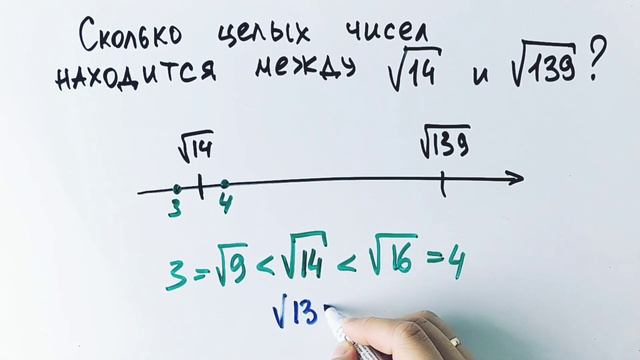 Сколько целых чисел
находится между √14 и √139?
√14 √139
3 4
3 = √9 < √14 < √16 = 4
√13